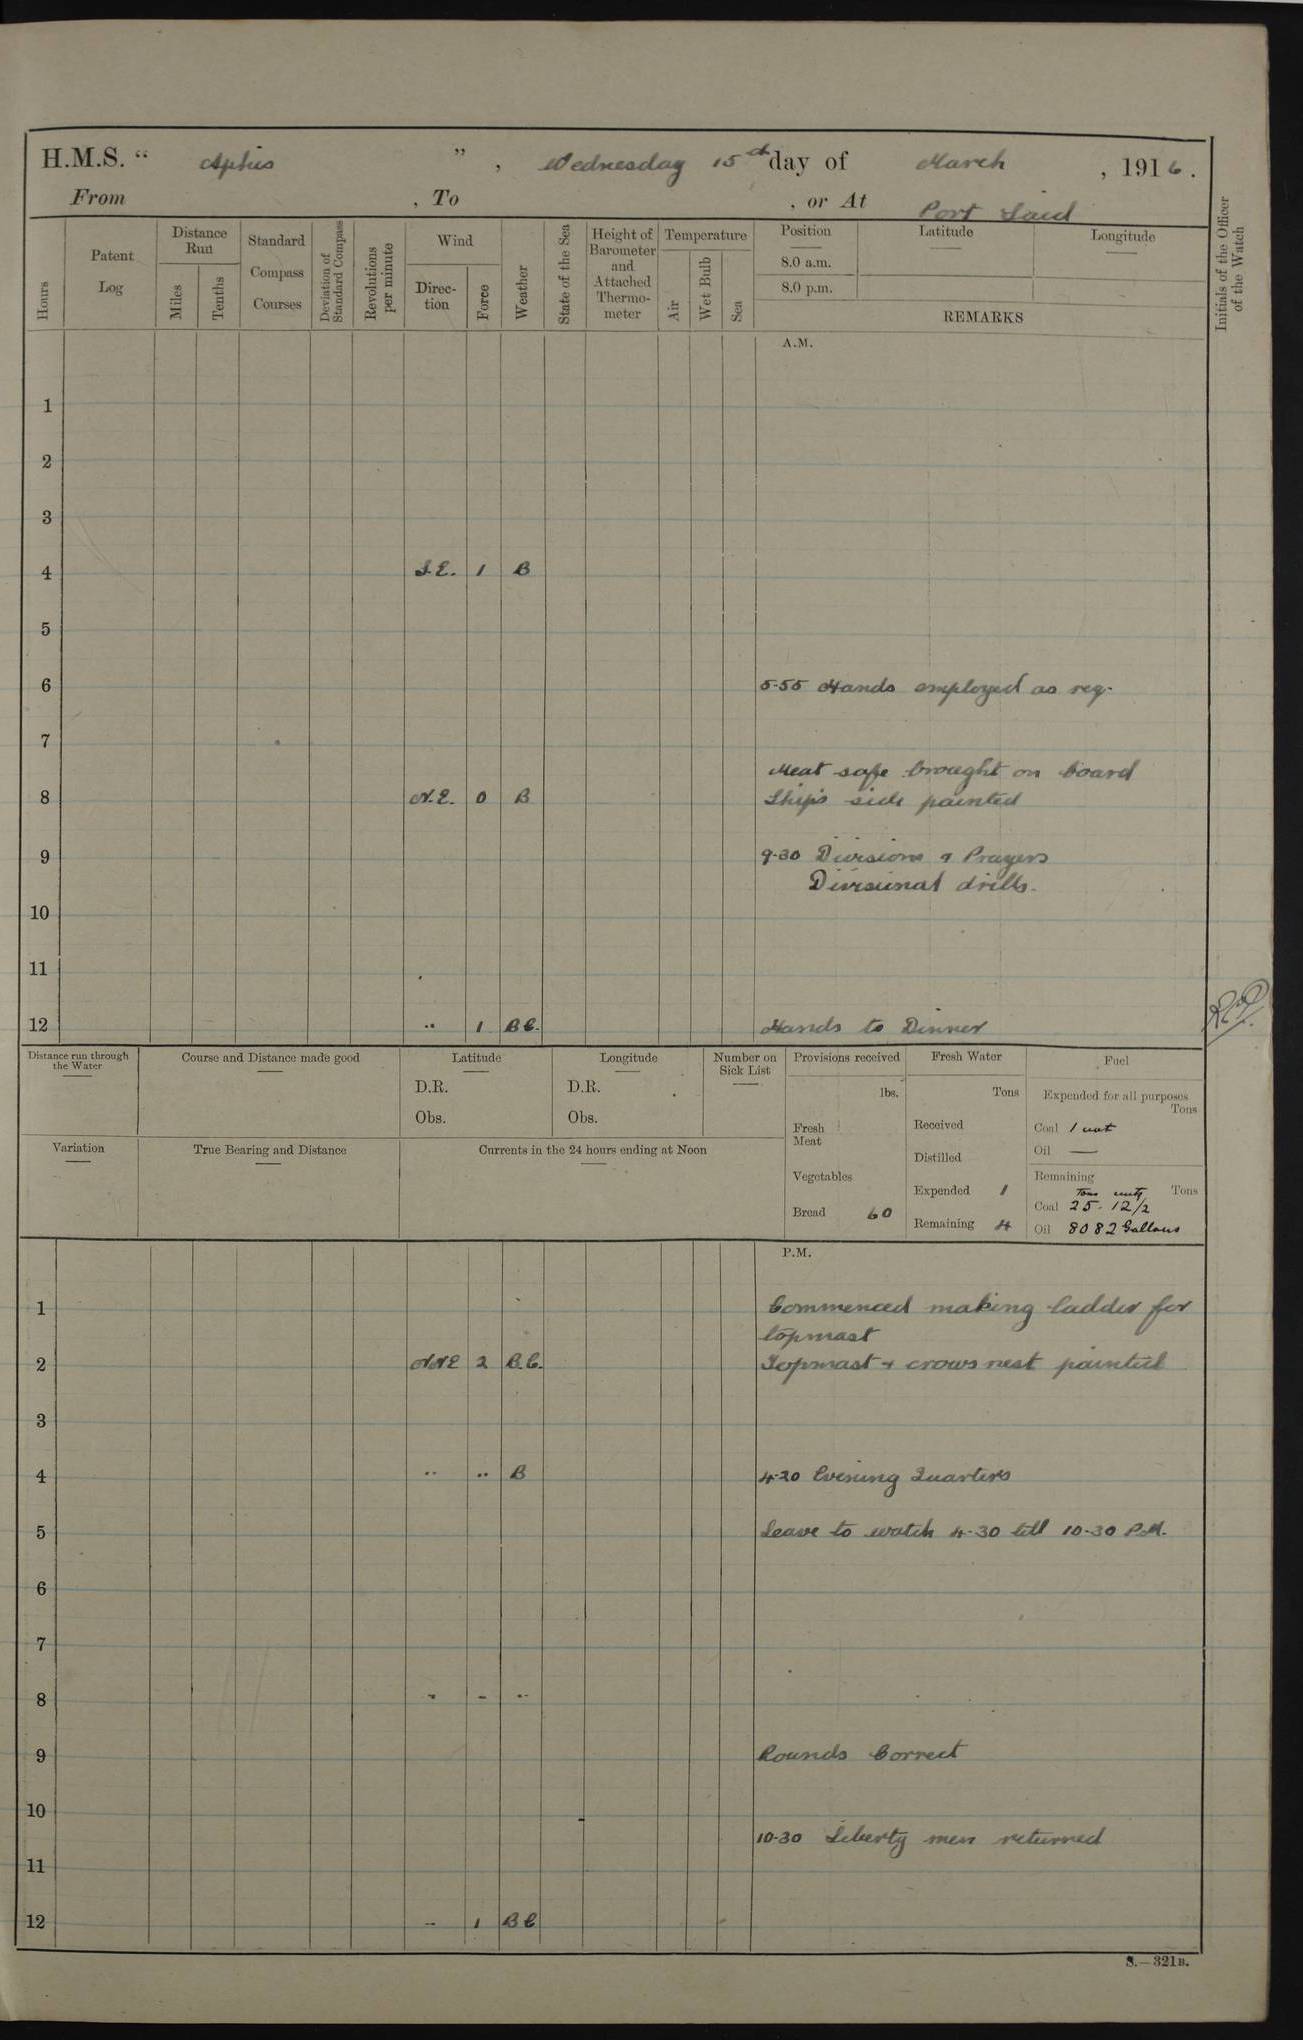 H.M.S. " Aphis " , Wednesday 15th day of March , 1916.
From , To , or At Port Said
Hours
Patent Log
Distance Run
Miles
Tenths
Standard Compass Courses
Deviation of Standard Compass
Revolutions per minute
Wind
Direc-tion
Force
Weather
State of the Sea
Height of Barometer and Attached Thermo-meter
Temperature
Air
Wet Bulb
Sea
Position
8.0 a.m.
8.0 p.m.
Latitude
Longitude
REMARKS
Initials of the Officer of the Watch
A.M.
1
2
3
4 S.E. 1 B
5
6 5-55 Hands employed as req.
7
Meat safe brought on board
8 N.E. 0 B Ships side painted
9 9-30 Divisions & Prayers
Divisional drills.
10
11
12 " 1 BC. Hands to Dinner
Distance run through the Water
Course and Distance made good
Latitude
D.R.
Obs.
Longitude
D.R.
Obs.
Number on Sick List
Provisions received
lbs.
Fresh Meat
Vegetables
Bread 60
Fresh Water
Tons
Received
Distilled
Expended 1
Remaining 4
Fuel
Expended for all purposes
Tons
Coal 1 cwt
Oil —
Remaining
Tons cwts Tons
Coal 25. 12/2
Oil 8082 Gallons
Variation
True Bearing and Distance
Currents in the 24 hours ending at Noon
P.M.
1 Commenced making ladder for
topmast
2 NNE 2 B.C. Topmast & crows nest painted
3
4 " " B 4-20 Evening Quarters
5 Leave to watch 4-30 till 10-30 P.M.
6
7
8 " " "
9 Rounds Correct
10
10-30 Liberty men returned
11
12 " 1 BC
S.—321B.